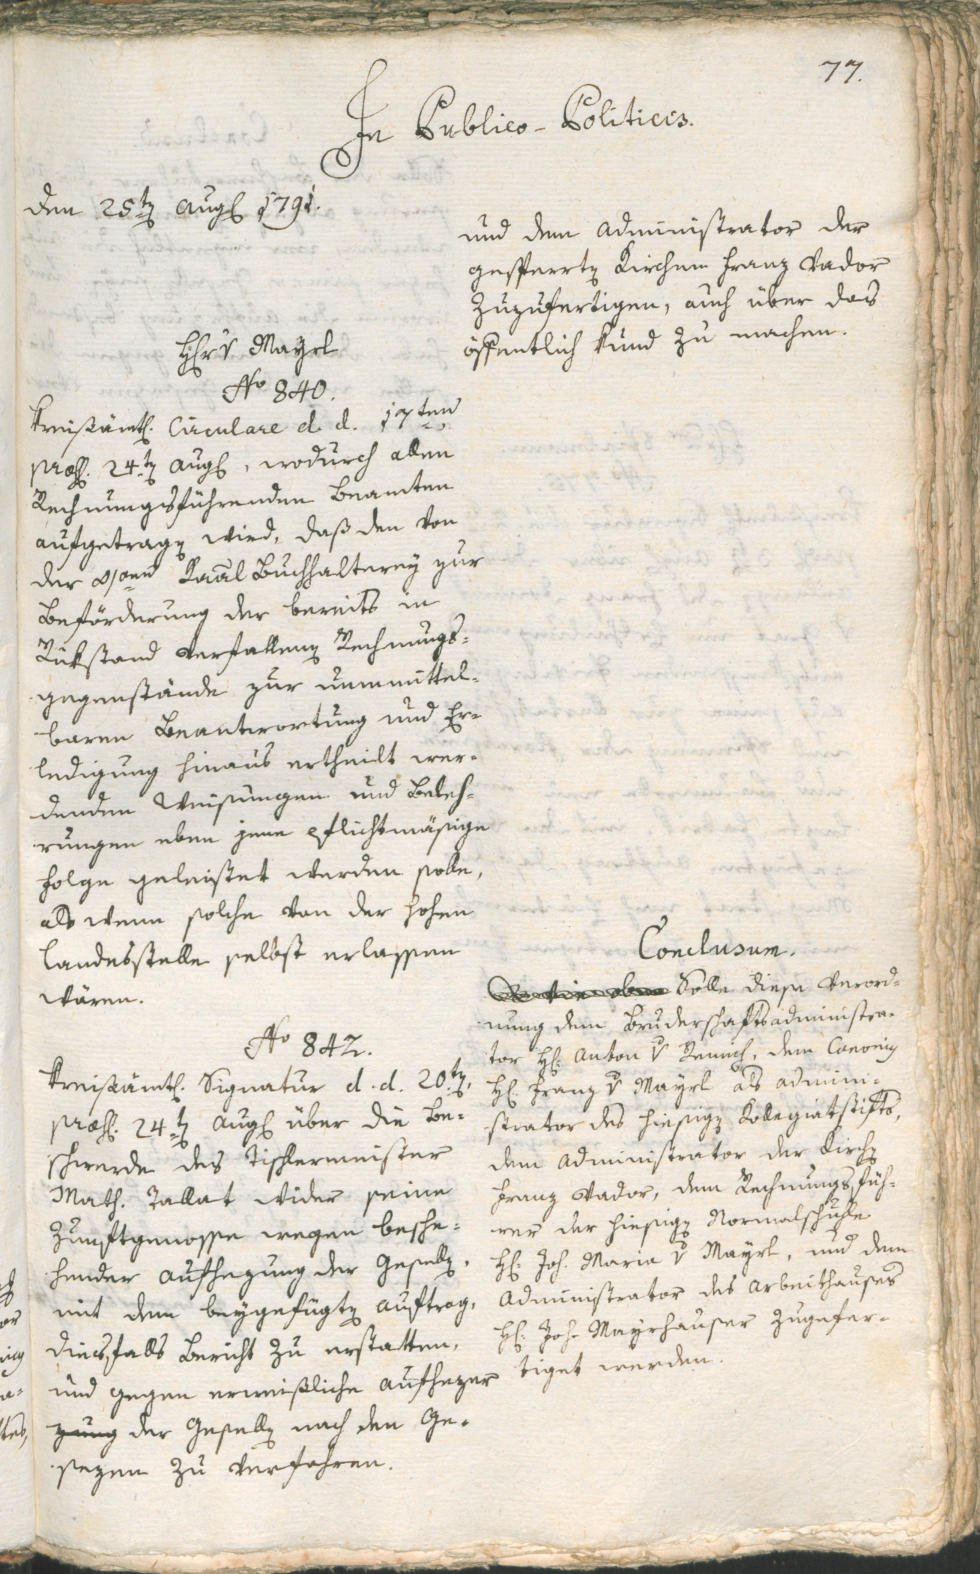 77.
In Publico-Politicis.
den 25t Aug 1791.
H Hr v Mayrl
No 840.
Kreisämtl. Circulare d. d. 17ten
præs. 24t Aug, wodurch allen
Rechnungsführenden Beamten
aufgetragen wird, daß den von
der Kaal Buchhalterey zur
Beförderung der bereits in
Rükstand verfallenen Rechnungs-
gegenstände zur unmittel-
baren Beantwortung und Er-
ledigung hinaus ertheilt wer-
denden Weisungen und Beleh-
rungen eben jene pflichtmäsige
Folge geleistet werden solle,
als wenn solche von der hohen
Landesstelle selbst erlassen
wären.
No 842.
Kreisämtl. Signatur d. d. 20t,
præs. 24t Aug über die Be-
schwerde des Tischlermeister
Math. Tallat wider seine
Zunftgenossen wegen besche-
hender Aufhezung der Gesellen,
mit dem beygefügten Auftrag,
diesfalls Bericht zu erstatten,
und gegen erweisliche Aufhezer
zung der Gesellen nach den Ge-
sezen zu verfahren.
und dem Administrator der
gesperrten Kirchen Franz Vador
zuzufertigen, auch über das
öffentlich kund zu machen.
Conclusum.
Solle diese Verord-
nung dem Bruderschaftsadministra-
tor H: Anton v, dem Canonig
H: Franz v Mayrl als Admini-
strator des hiesigen Kollegiatstifts,
dem Administrator der Kirchen
Franz Vador, dem Rechnungsfüh-
rer der hiesigen Normalschule
H: Joh. Maria v Mayrl, und dem
Administrator des Arbeithauses
H: Joh. Mayrhauser zugefer-
tiget werden.